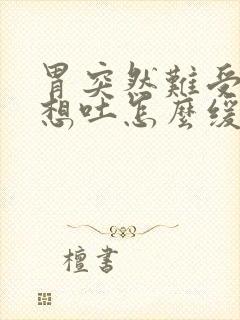 胃突然難受
想吐怎麼缓
檀書